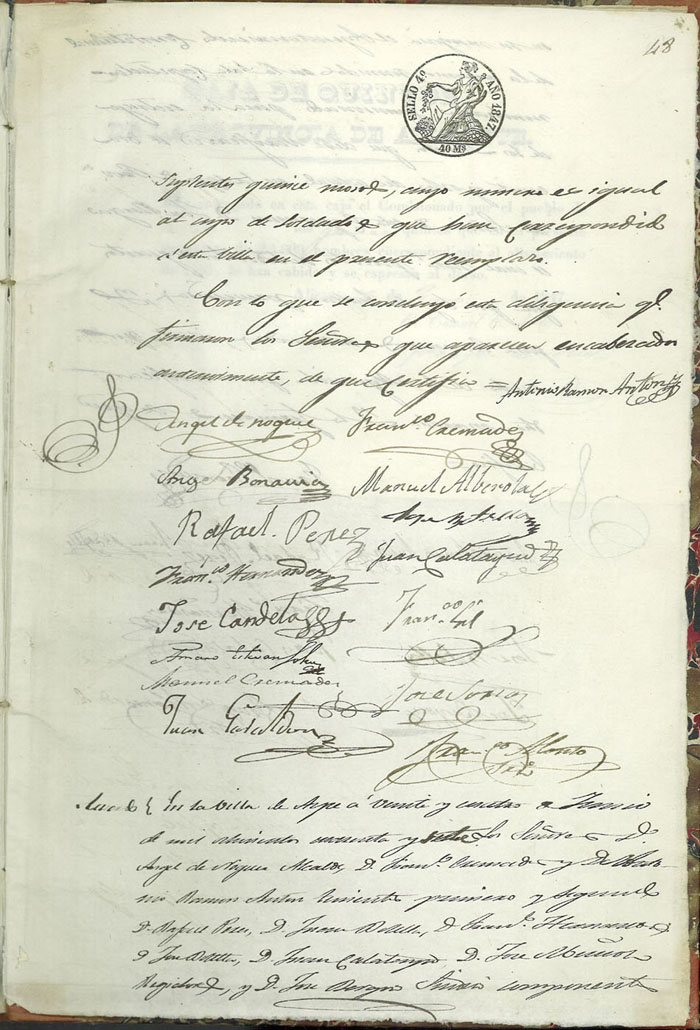 48
SELLO 4º AÑO 1847.
40 Ms
Suplentes quince mozos, cuyo numero es igual
al cupo de Soldados que han correspondido
a esta Villa en el presente reemplazo.
Con lo que se concluyó esta diligencia q.
firmaron los Señores que aparecen encabezados
anteriormente, de que Certifico =
Antonio Ramon Anton
Angel de Noguer Fran.co Cremades
Ange Bonavia Manuel Alberola
Rafael Perez
Fran.co Hernandez Juan Calatayud
Jose Candela Fran.co
Amaro Estevan
Manuel Cremades Jose
Juan
Fran.co Alonso
En la Villa de Aspe a veinte y cuatro Junio
de mil ochocientos cuarenta y siete Los Señores D.
Angel de Noguer Alcalde, D. Fran.co Cremades y D. Anto
nio Ramon Anton teniente primero y segundo
D. Rafael Perez, D. Juan D. Fran.co Hernandez
D. Jose D. Juan Calatayud D. Jose
Regidores, y D. Jose Sindico componentes